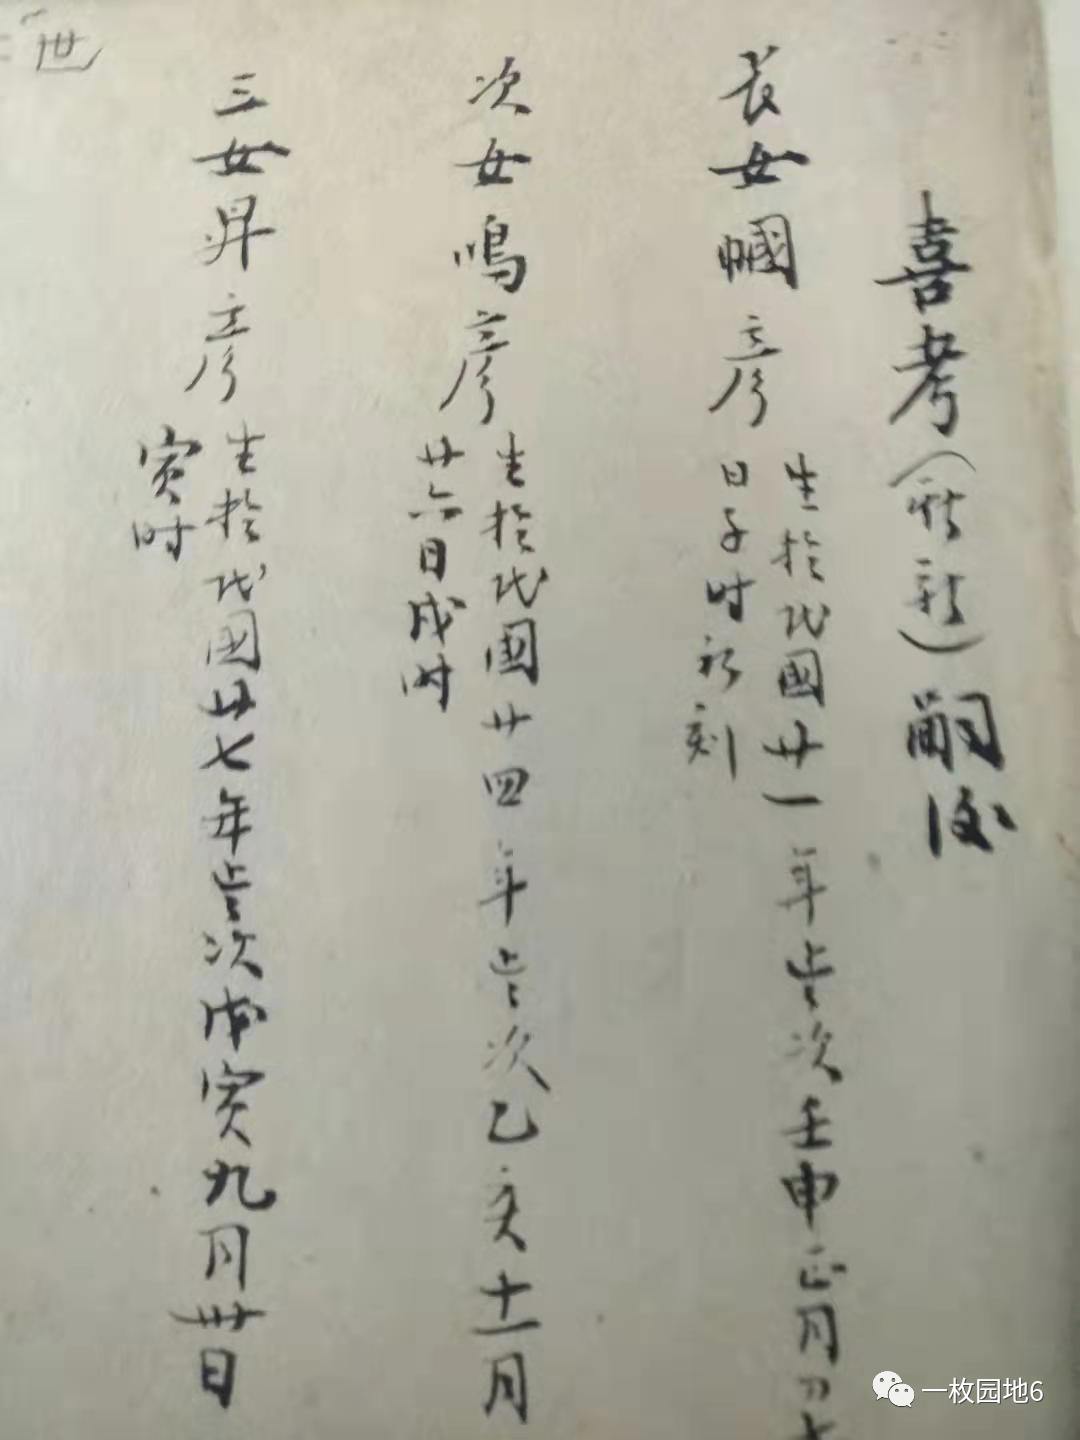 喜考（新新）嗣後
長女幗彥
生於民國廿一年岁次壬申正月初七
日子时初刻
次女鳴彥
生於民國廿四年岁次乙亥十一月
廿六日戌时
三女昇彥
生於民國廿七年岁次戊寅九月卅日
寅时
世
一枚园地6